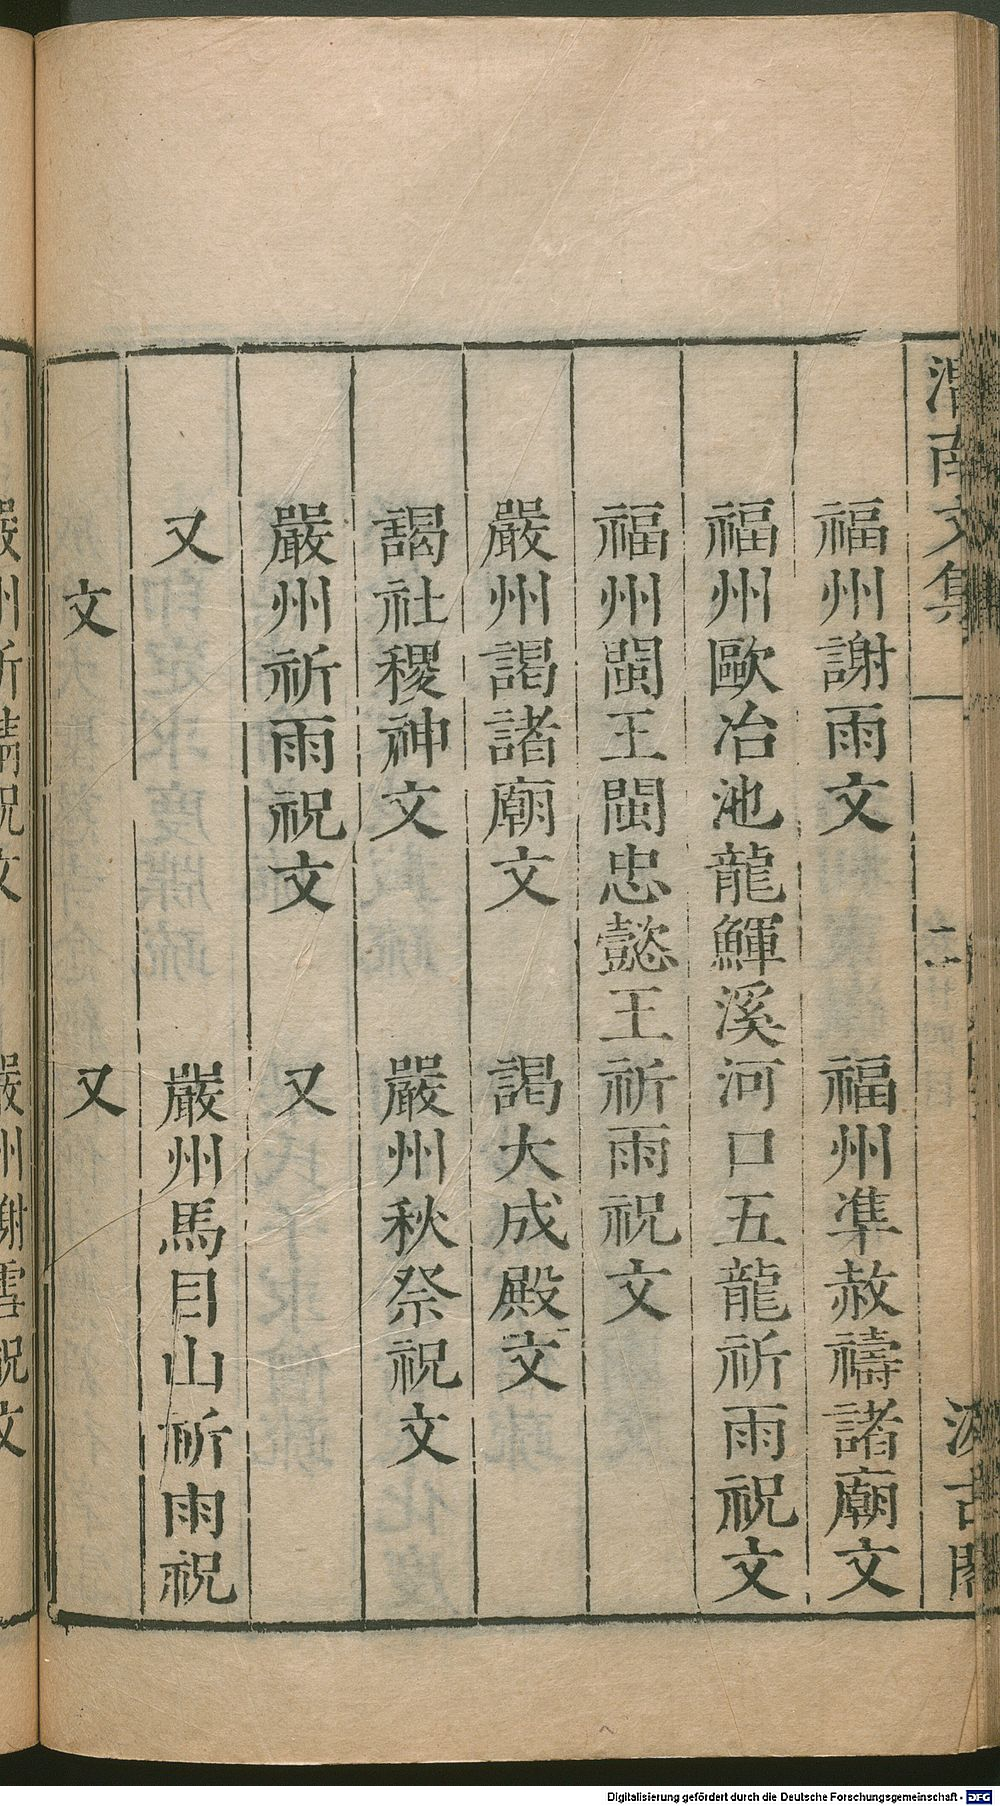 渭南文集
汲古閣
福州謝雨文　福州準赦禱諸廟文
福州歐冶池龍鱓溪河口五龍祈雨祝文
福州閩王閩忠懿王祈雨祝文
嚴州謁諸廟文　謁大成殿文
謁社稷神文　嚴州秋祭祝文
嚴州祈雨祝文　又
又　嚴州馬目山祈雨祝
文　又
嚴州祈晴祝文　嚴州謝雪祝文
Digitalisierung gefördert durch die Deutsche Forschungsgemeinschaft - DFG